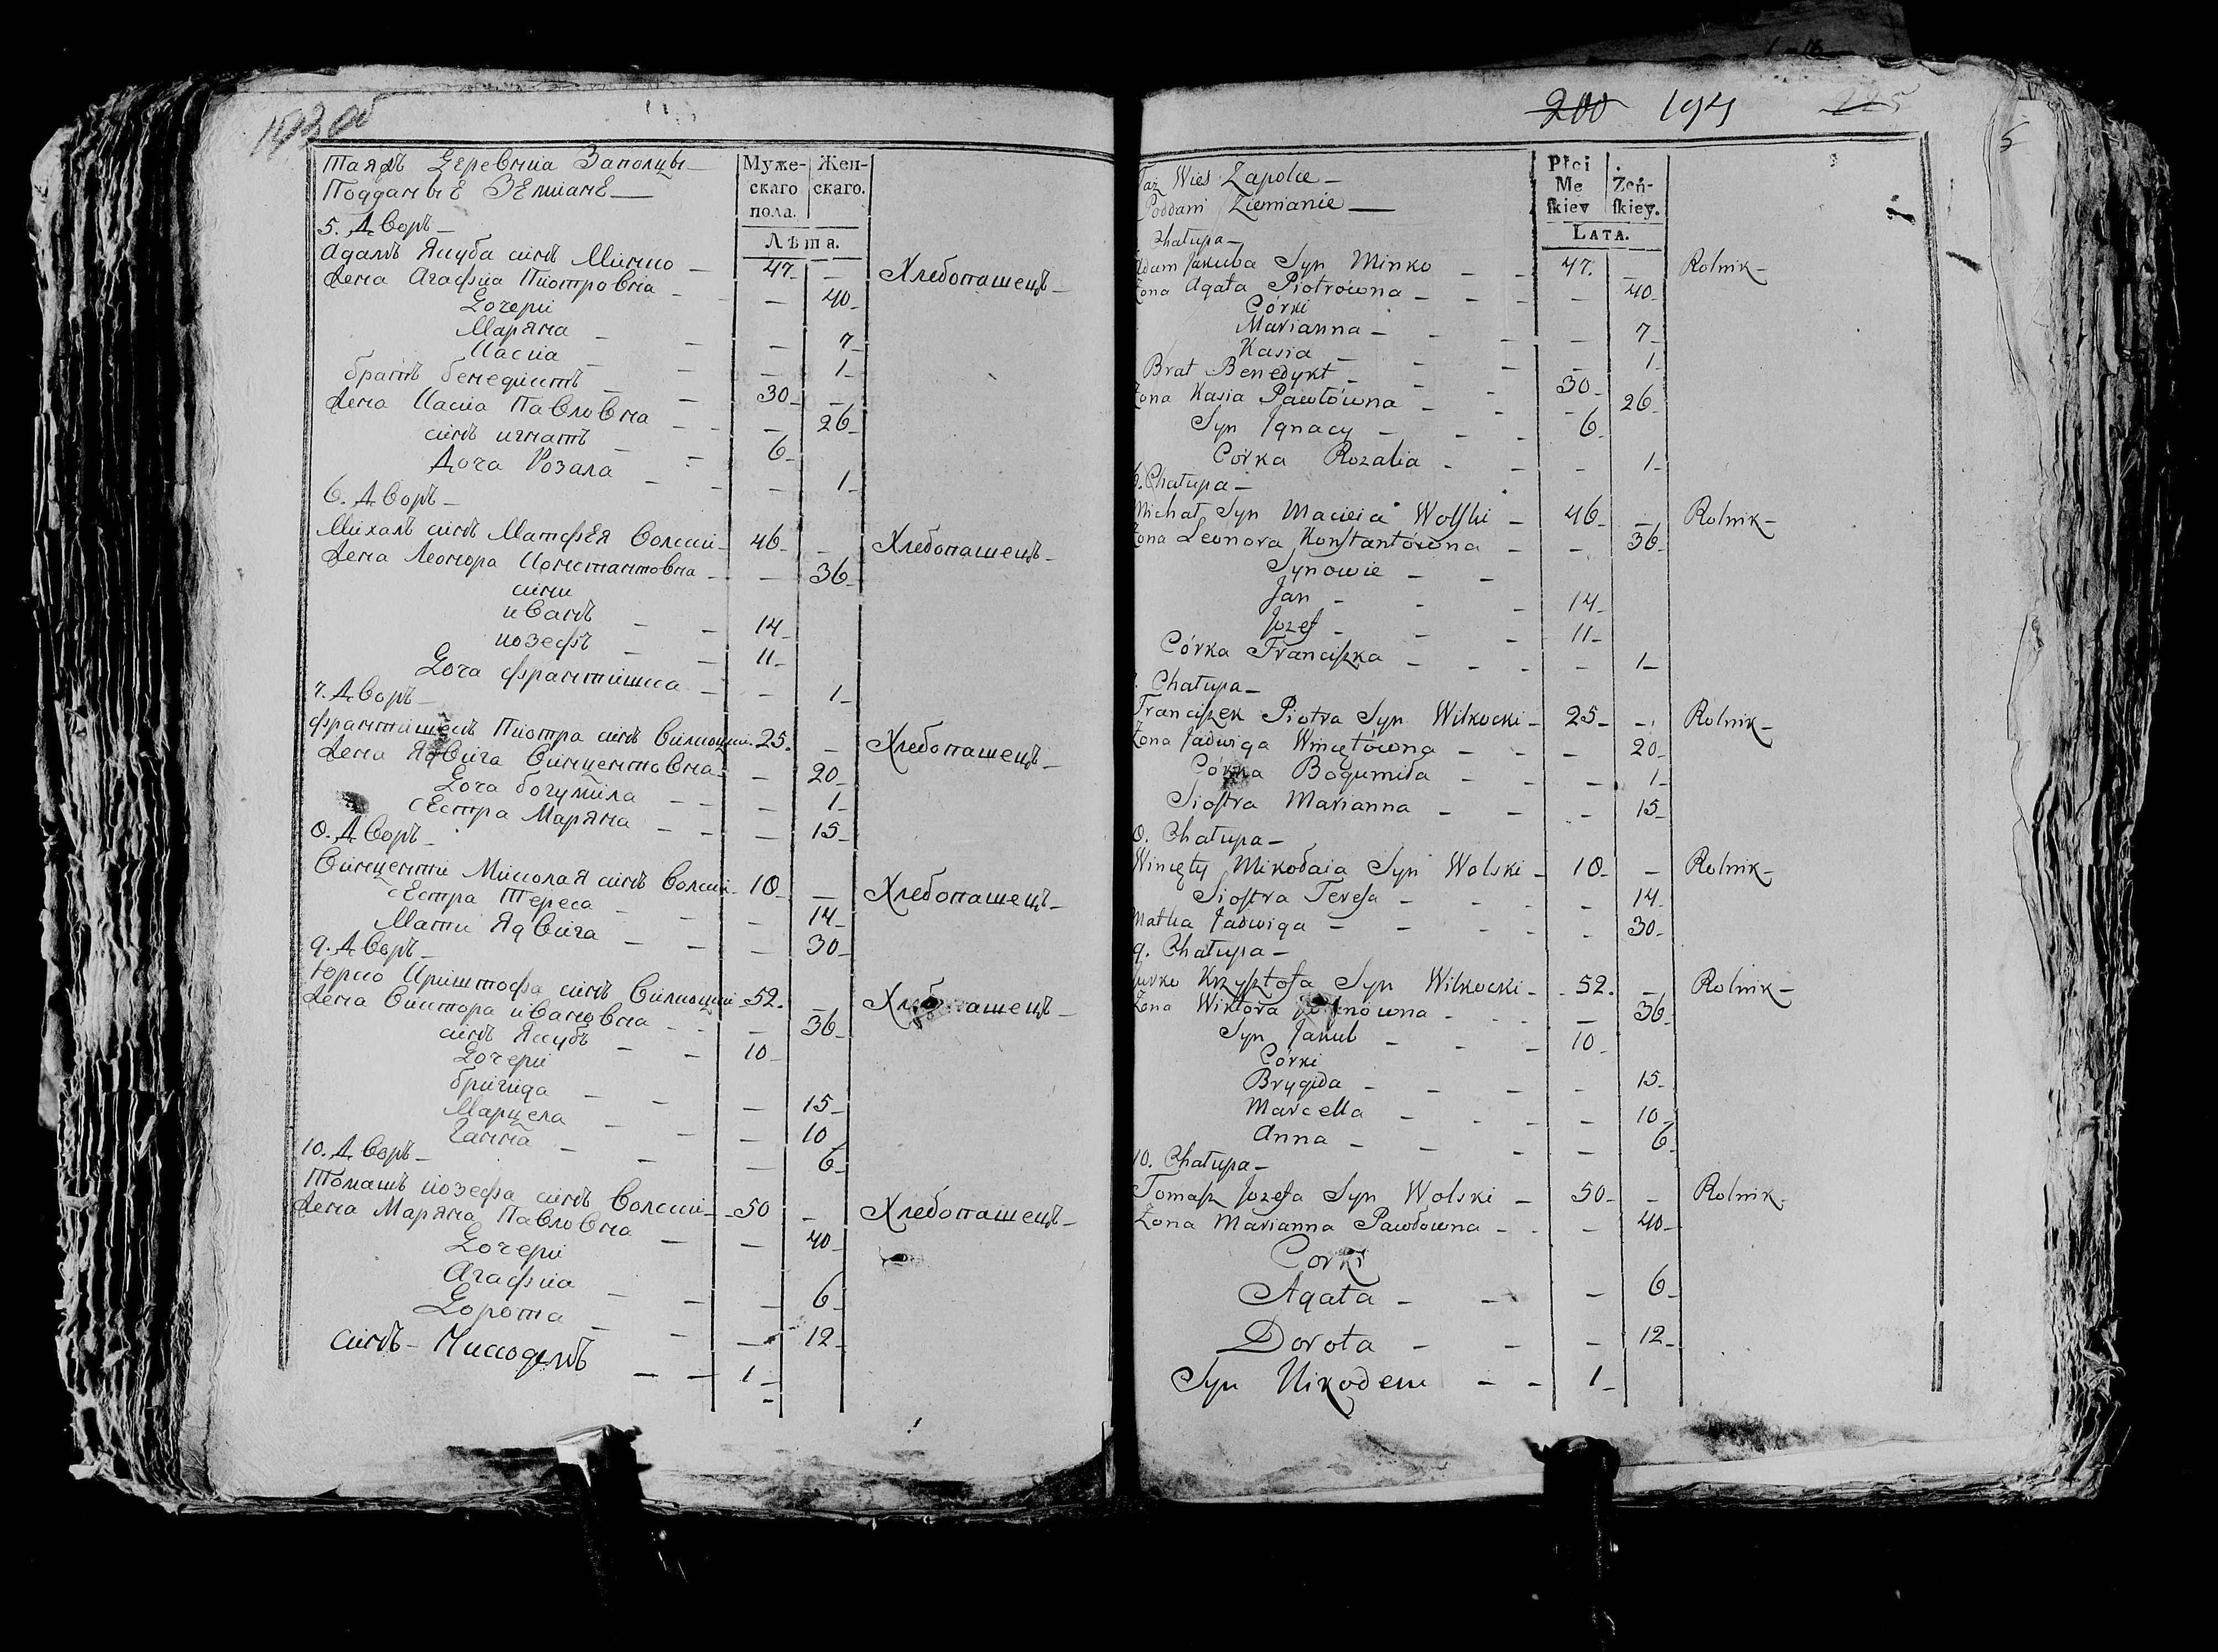 193 об
таяжъ Деревниа Заполцы
Подданные Земіане
Муже-скаго пола.
Жен-скаго.
Лѣта.
5. Дворъ
Адамъ Якуба синъ Минко 47. — Хлебопашецъ
Жена Агафиа Піотровна — 40
Дочери
Маряна — 7
Касиа — 1
братъ бенедиктъ 30 —
Жена Касиа Павловна — 26
синъ игнатъ 6
Доча Розала — 1
6. Дворъ
Михалъ синъ Матфея Волски 46 — Хлебопашецъ
Жена Леонора Константовна — 36
сини
иванъ 14
иозефъ 11
Доча франтишка — 1
7. Дворъ
франтишекъ Піотра синъ Вилкоцки 25. — Хлебопашецъ
Жена Ядвига Винцентовна — 20
Доча богумила — 1
сестра Маряна — 15
8. Дворъ
Винценти Миколая синъ Волски 18 — Хлебопашецъ
сестра Тереса — 14
Мати Ядвига — 30
9. Дворъ
Юрко Криштофа синъ Вилкоцки 52. — Хлебопашецъ
Жена Виктора ивановна — 36
синъ Якубъ 10
Дочери
бригида — 15
Марцела — 10
Ганна — 6
10. Дворъ
Томашъ иозефа синъ Волски 50 — Хлебопашецъ
Жена Маряна Павловна — 40
Дочери
Агафиа — 6
Дорота — 12
синъ Никодемъ 1
200 194 225
5
Taż Wieś Zapolce
Poddani Ziemianie
Płci Meſkiey
Żeń-ſkiey.
Lata.
Chałupa
Adam Jakuba Syn Minko 47. — Rolnik
Żona Agata Piotrówna — 40
Córki
Marianna — 7
Kasia — 1
Brat Benedykt 30
Żona Kasia Pawłówna — 26
Syn Ignacy 6
Corka Rozalia — 1
6. Chałupa
Michał Syn Macieia Wolſki 46 — Rolnik
Żona Leonora Konſtantówna — 36
Synowie
Jan 14
Jozef 11
Córka Franciſzka — 1
Chałupa
Franciſzek Piotra Syn Wilkocki 25 — Rolnik
Żona Jadwiga Winiętówna — 20
Córka Bogumiła — 1
Sioſtra Marianna — 15
8. Chałupa
Winięty Mikołaia Syn Wolski 18 — Rolnik
Sioſtra Tereſa — 14
Matka Jadwiga — 30
9. Chałupa
Jurko Krzyſztofa Syn Wilkocki 52. — Rolnik
Żona Wiktora — 36
Syn Jakub 10
Córki
Brygida — 15
Marcella — 10
Anna — 6
10. Chałupa
Tomaſz Jozefa Syn Wolski 50 — Rolnik
Żona Marianna Pawłowna — 40
Corki
Agata — 6
Dorota — 12
Syn Nikodem 1